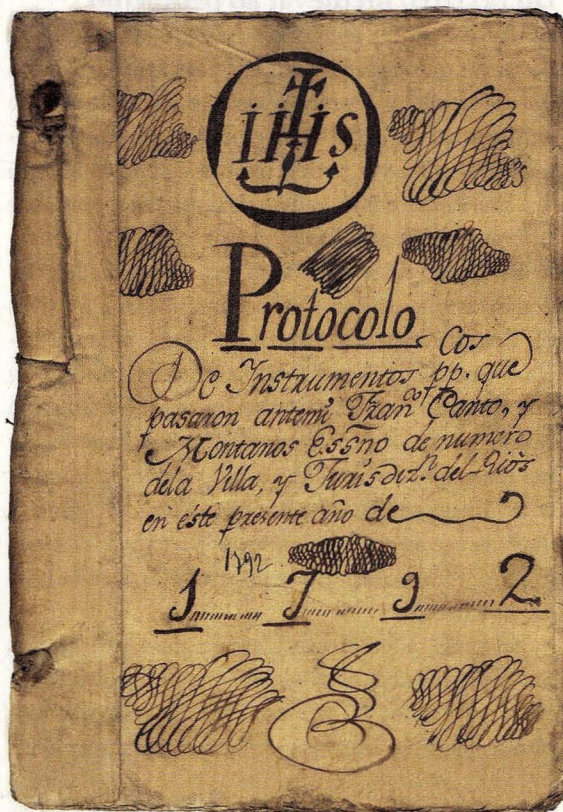 IHS
Protocolo
De Instrumentos ppcos. que
pasaron antemi Franco. Canto, y
Montanos Essno de numero
dela Villa, y Jurisdizn. del Rios
en este presente año de
1792
1792